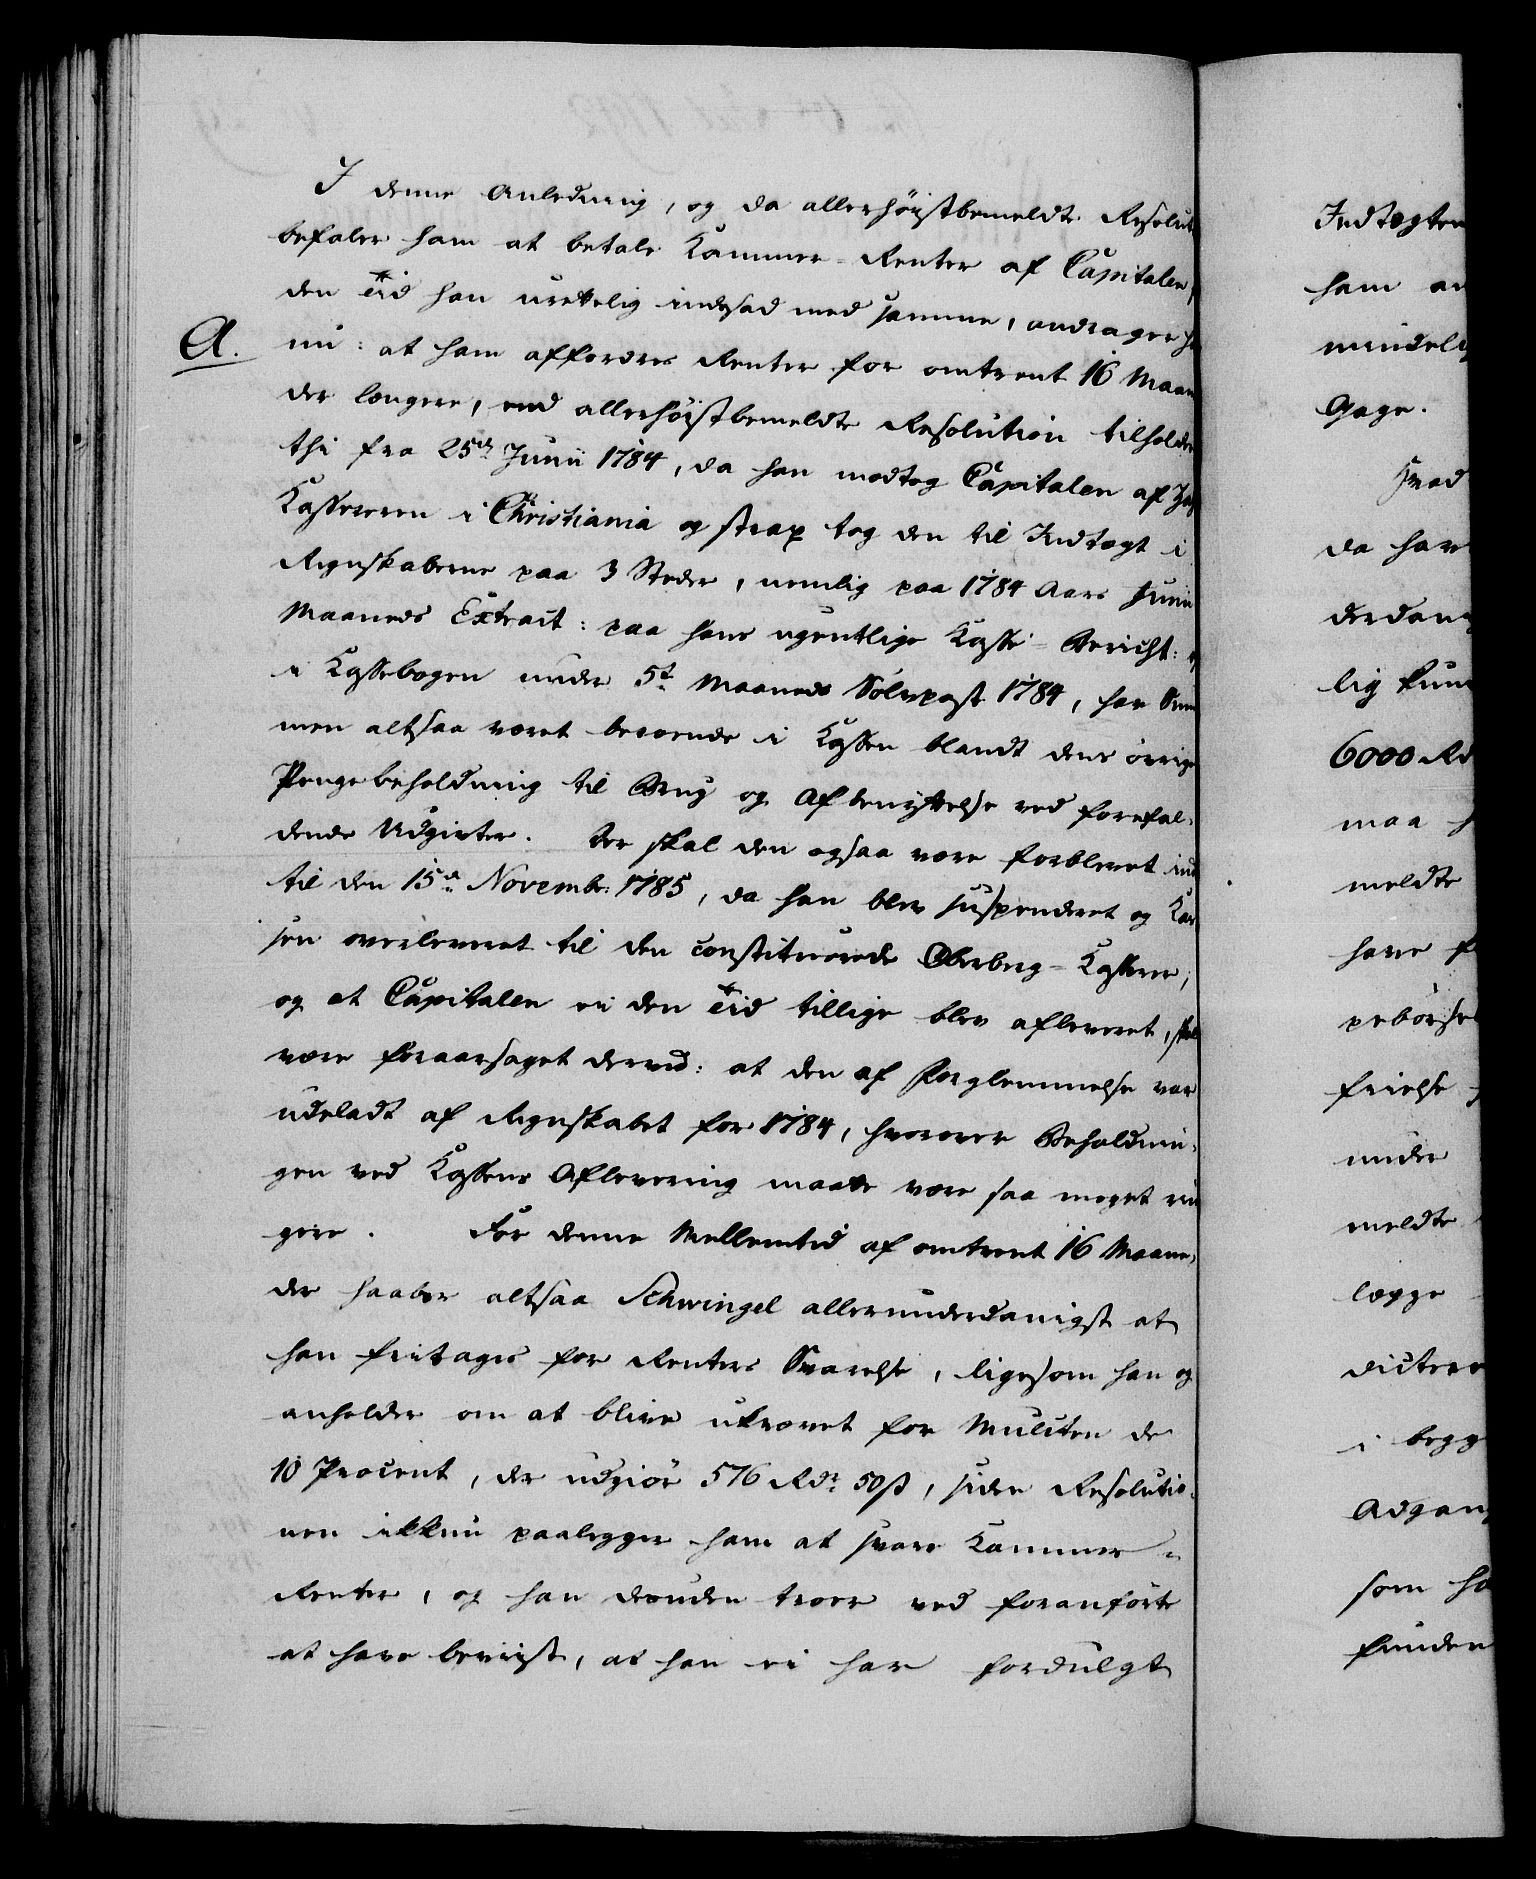 I denne Anledning, og da allerhöistbemeldte Resolut
befaler ham at betale Kammer-Renter af Capitalen
den Tid han urettelig indesad med samme, andrager h
A.
nu: at ham affordres Renter for omtrent 16 Maan
der længere, end allerhöistbemeldte Resolution tilholder
thi fra 25de Junii 1784, da han modtog Capitalen af
Kassereren i Christiania og strax tog den til Indtægt i
Regnskaberne paa 3 Steder, nemlig paa 1784 Aars Junii
Maaneds Extract: paa hans ugentlige Kasse-Bericht:
i Kassebogen under 5te Maaneds Sölvpost 1784, har Sum
men altsaa været beroende i Kassen blandt dens övrige
Pengebeholdning til Brug og Afbenyttelse ved forefal-
dende Udgivter. Der skal den ogsaa være forblevet ind
til den 15de Novembr: 1785, da han blev suspenderet og Kas
sen overleveret til den constituerede Oberberg-Kasserer;
og at Capitalen ei den Tid tillige blev afleveret, skal
være foraarsaget derved: at den af Forglemmelse var
udeladt af Regnskabet for 1784, hvorover Beholdnin-
gen ved Kassens Aflevering maatte være saa meget rin
gere. For denne Mellemtid af omtrent 16 Maane-
der haaber altsaa Schwingel allerunderdanigst at
han fritages for Renters Svarelse, ligesom han og
anholder om at blive ukrævet for Mulcten de
10 Procent, der udgiör 576 Rdr 50 s, siden Resolutio-
nen ikkun paalegger ham at svare Kammer-
Renter, og han desuden troer ved foranförte
at have beviist, at han ei har fordulgt
Indtægten
ham
Gage.
Hvad
da hav
derdani
lig kun
6000 Rd
maa
meldte
have
under
meldte
lægge
i begg
Adgang
som ha
funden